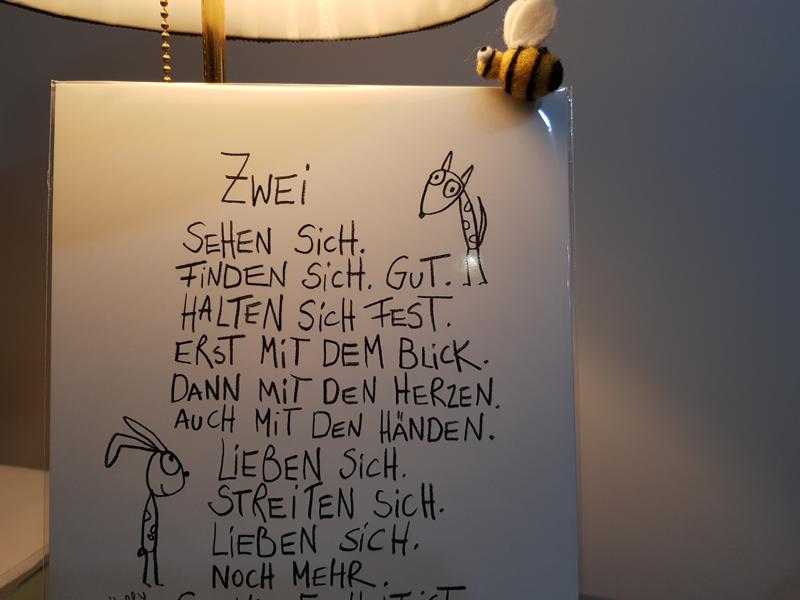 ZWEi
SEHEN SiCH.
FiNDEN SiCH. GUT.
HALTEN SiCH FEST.
ERST MiT DEM BLiCK.
DANN MiT DEN HERZEN.
AUCH MiT DEN HÄNDEN.
LiEBEN SiCH.
STREiTEN SiCH.
LiEBEN SiCH.
NOCH MEHR.